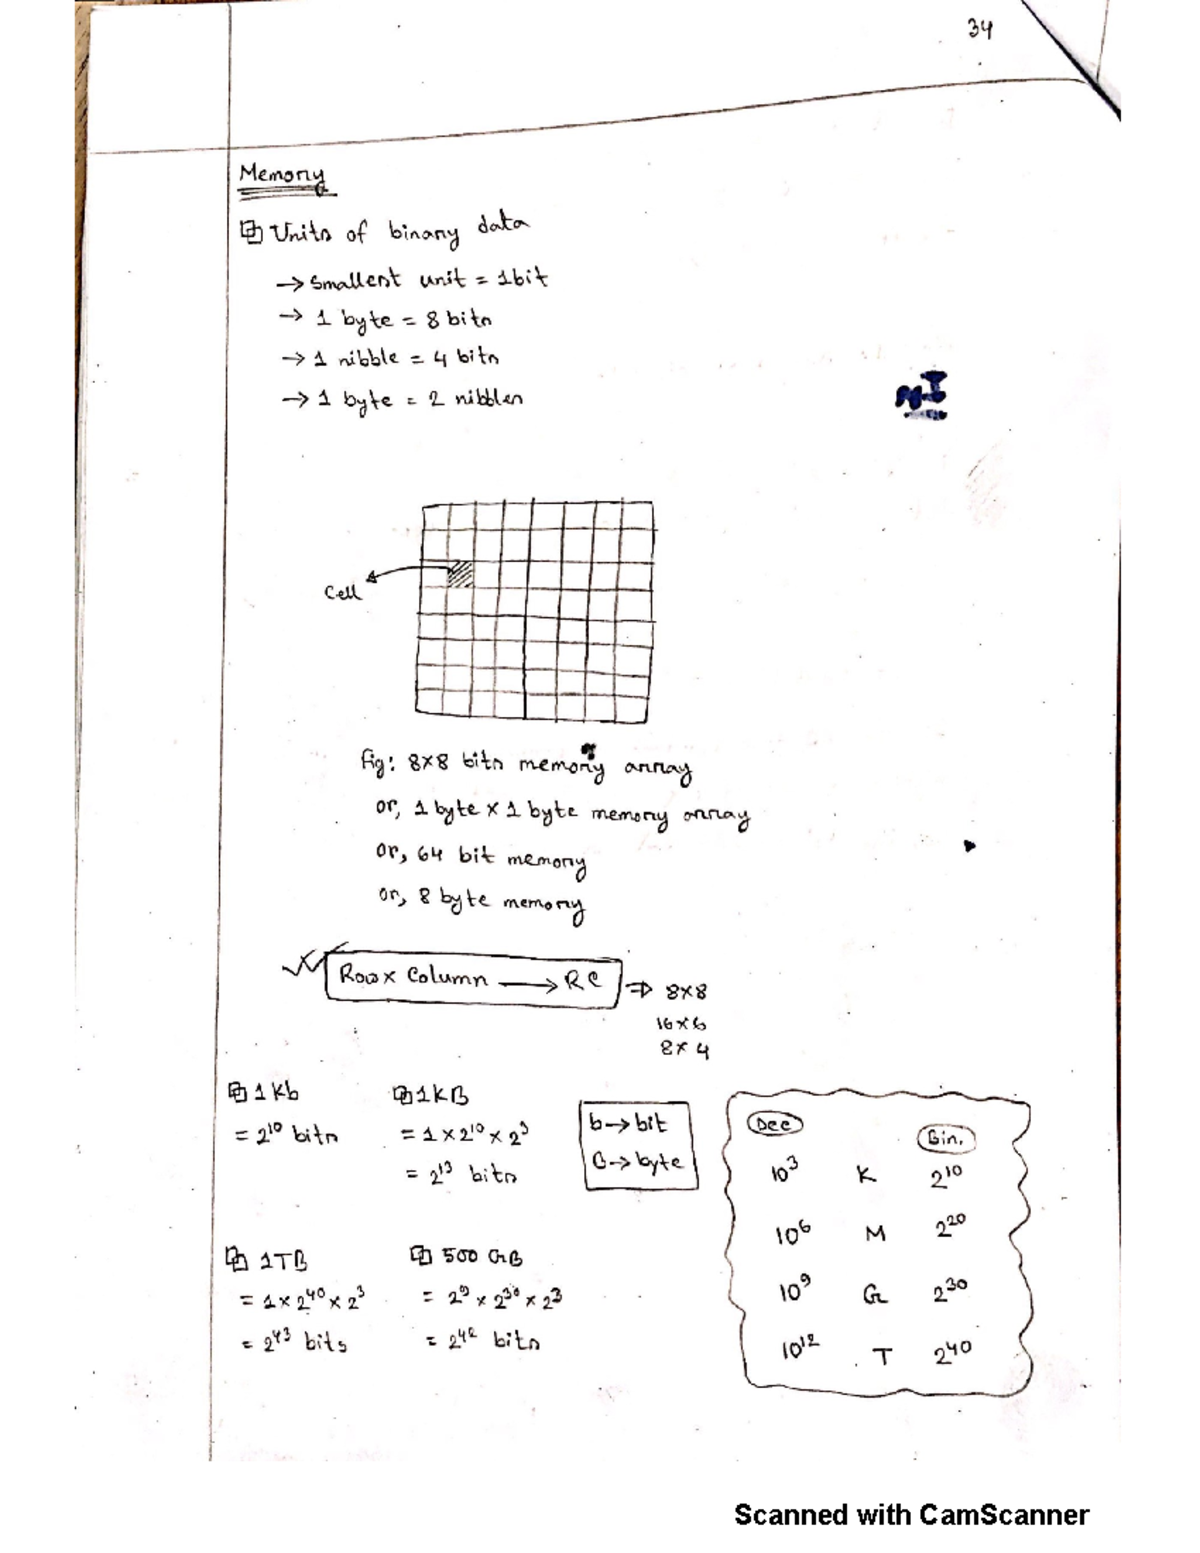 34
Memory
Units of binary data
→ Smallest unit = 1bit
→ 1 byte = 8 bits
→ 1 nibble = 4 bits
→ 1 byte = 2 nibbles
Cell
fig: 8×8 bits memory array
or, 1 byte × 1 byte memory array
or, 64 bit memory
or, 8 byte memory
Row× Column → RC ⇒ 8×8
16×6
8×4
1 Kb
= 2¹⁰ bits
1KB
= 1×2¹⁰×2³
= 2¹³ bits
b→bit
B→byte
Dec Bin.
10³ K 2¹⁰
10⁶ M 2²⁰
10⁹ G 2³⁰
10¹² T 2⁴⁰
1TB
= 1×2⁴⁰×2³
= 2⁴³ bits
500 GB
= 2⁹×2³⁰×2³
= 2⁴² bits
Scanned with CamScanner